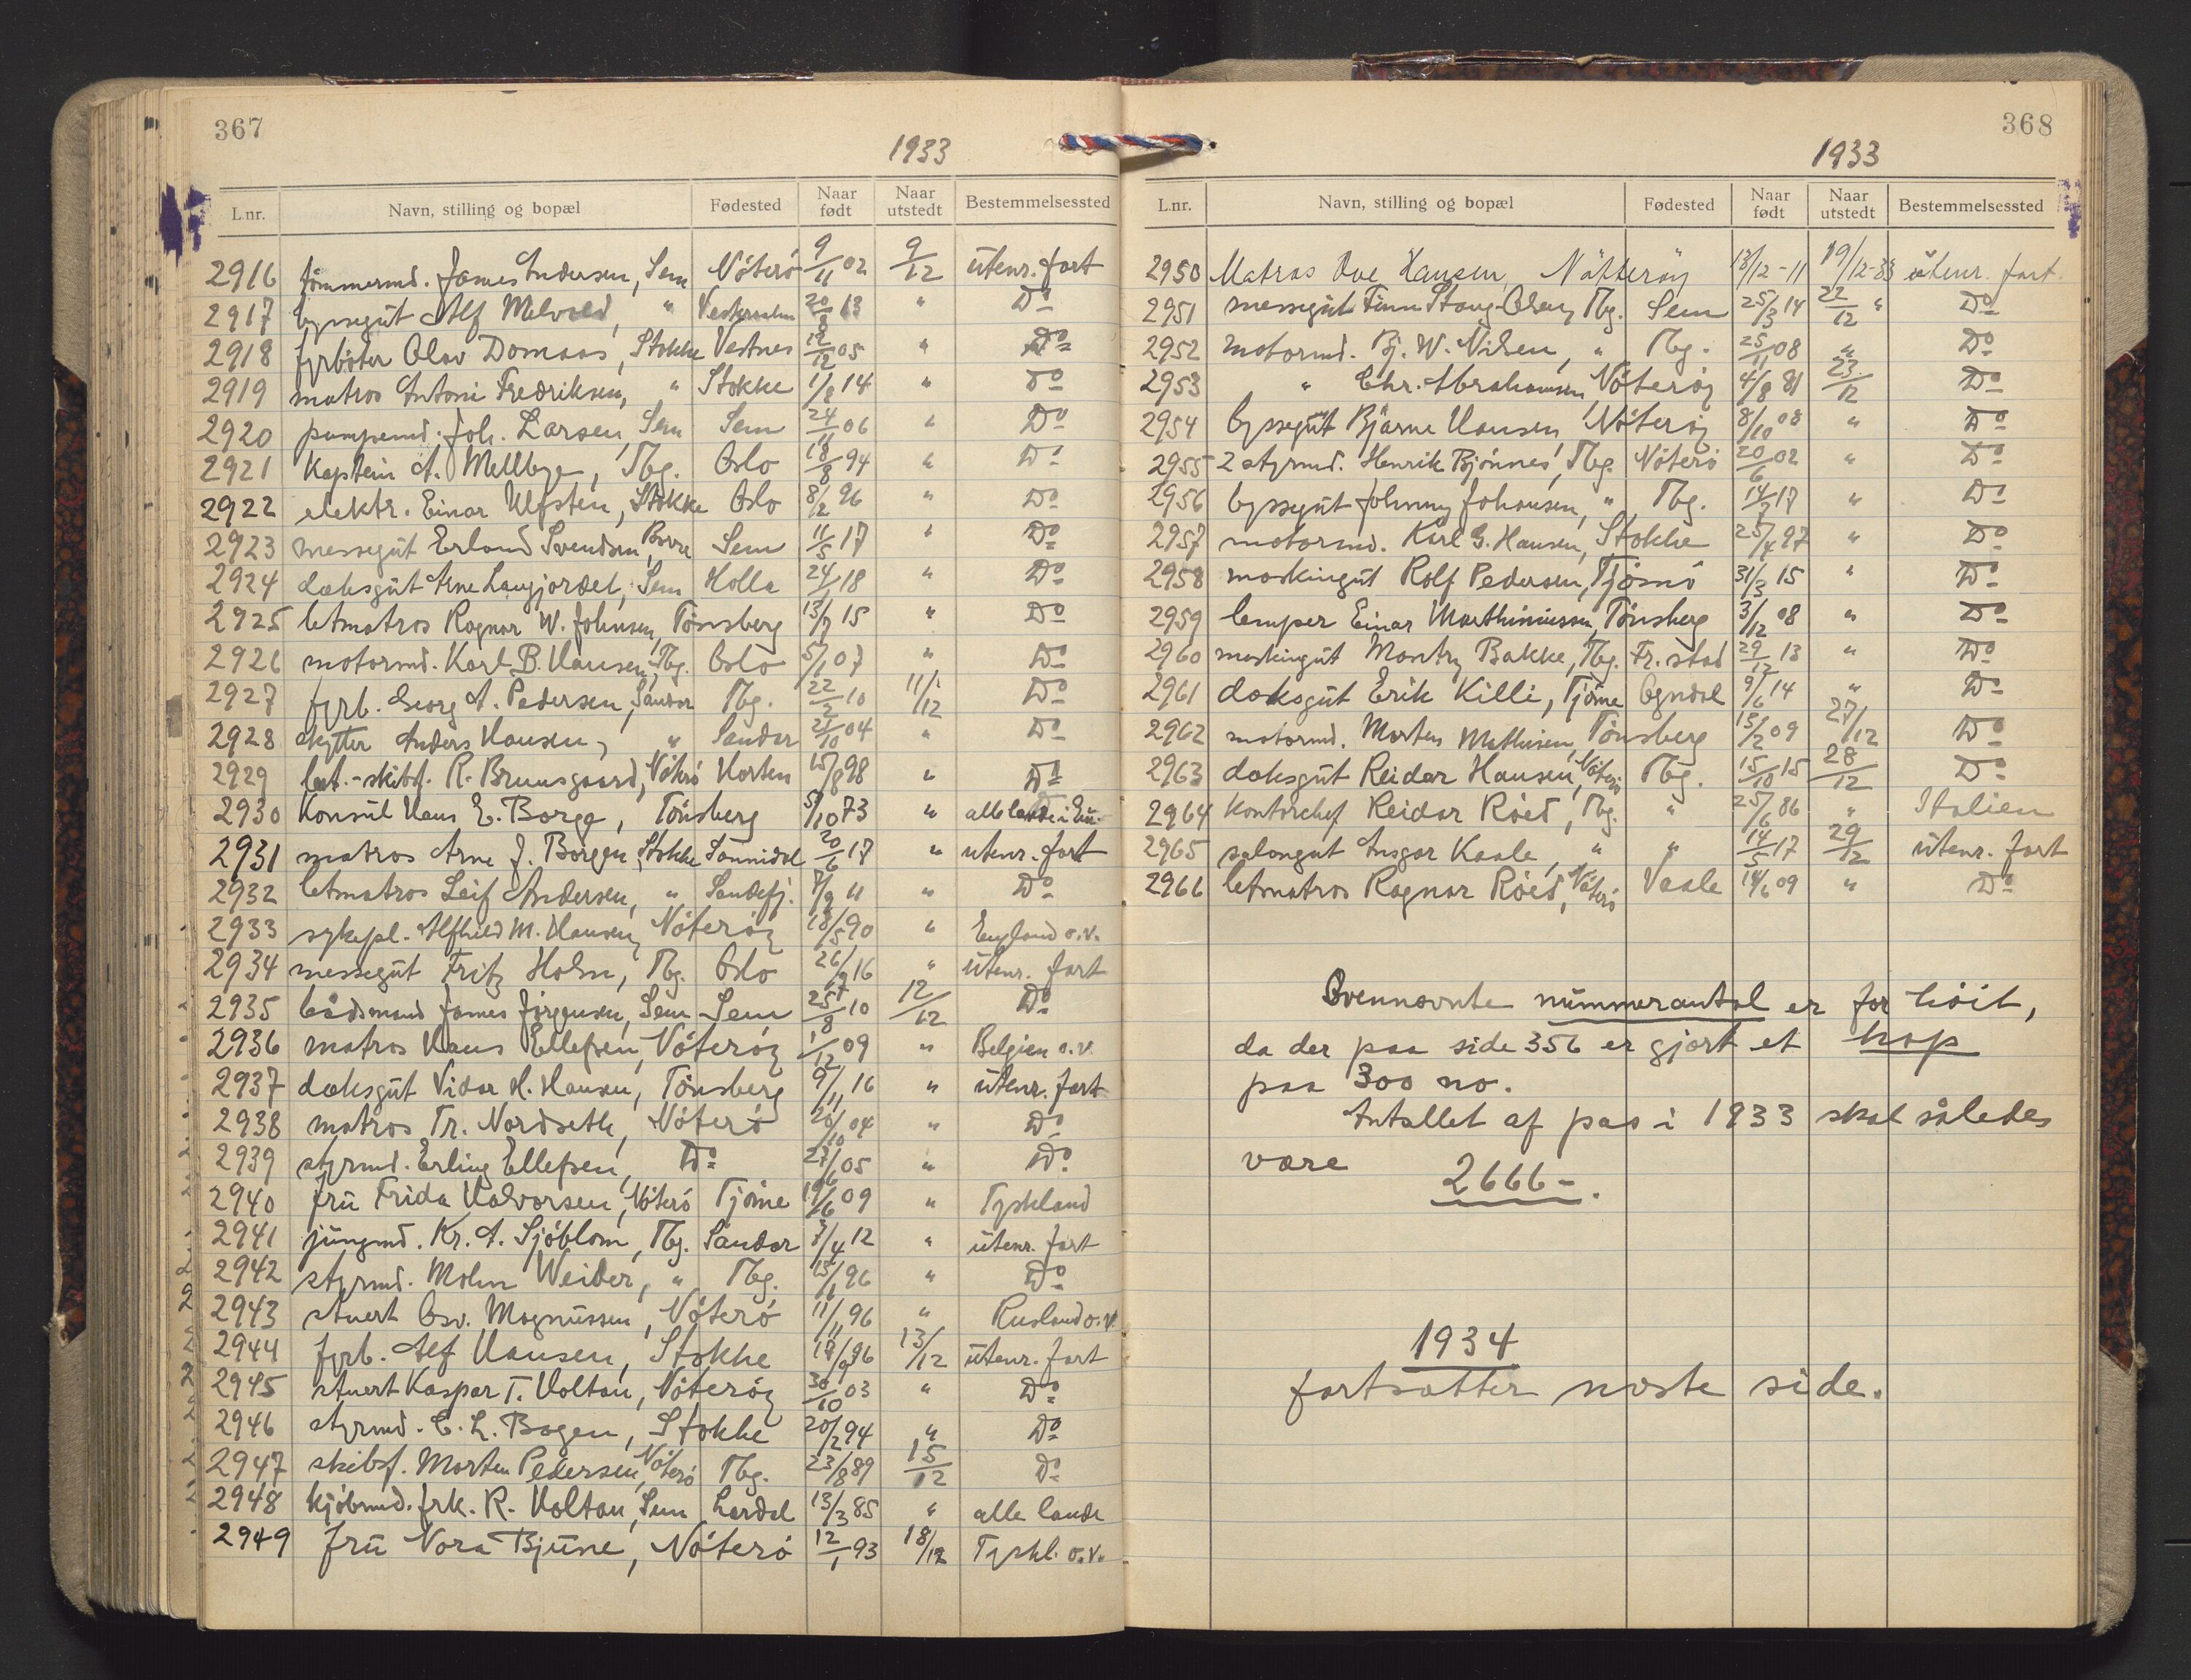 367
1933
Lnr. Navn, stilling og bopæl Fødested Naar født Naar utstedt Bestemmelsessted
2916 tømmermd. James Andersen, Sem Nøterö 9/11 02 9/12 utenr. fart
2917 byssegut Alf Melvold, " 20/8 13 " Do
2918 fyrbøter Olav Domaas, Stokke Vestnes 12/12 05 " Do
2919 matros Antoni Fredriksen, " Stokke 1/8 14 " Do
2920 pumpemd. Joh. Larsen, Sem Sem 24/11 06 " Do
2921 Kaptein A. Mellbye, Tbg. Oslo 18/8 94 " Do
2922 elektr. Einar Ulfsten, Stokke Oslo 8/2 96 " Do
2923 messegut Erland Svendsen, Borre Sem 11/5 17 " Do
2924 dæksgut Arne Langjordet, Sem Holla 24/1 18 " Do
2925 letmatros Ragnar W. Johnsen, Tönsberg 13/7 15 " Do
2926 motormd. Karl B. Hansen, Tbg. Oslo 5/1 07 " Do
2927 fyrb. Georg A. Pedersen, Sandar Tbg. 22/2 10 11/12 Do
2928 skytter Anders Hansen, " Sandar 21/10 04 " Do
2929 bat.-skibsf. R. Bruusgaard, Nöterö Horten 15/8 98 " Do
2930 Konsul Hans E. Borge, Tönsberg 5/10 73 " alle lande i Eur.
2931 matros Arne J. Borgen, Stokke Sannidal 20/6 17 " utenr. fart
2932 letmatros Leif Andersen, " Sandefj. 7/9 11 " Do
2933 sykepl. Alfhild M. Hansen, Nöteröy 18/5 90 " England o.v.
2934 messegut Fritz Holm, Tbg. Oslo 26/9 16 " utenr. fart
2935 bådsmand James Jörgensen, Sem Sem 25/8 10 12/12 Do
2936 matros Hans Ellefsen, Nöteröy 1/12 09 " Belgien o.v.
2937 dæksgut Vidar H. Hansen, Tönsberg 9/11 16 " utenr. fart
2938 matros Tr. Nordseth, Nöterö 20/10 04 " Do
2939 styrmd. Erling Ellefsen, Do 27/6 05 " Do
2940 fru Frida Halvorsen, Nöterö Tjöme 19/6 09 " Tyskland
2941 jungmd. Kr. A. Sjöblom, Tbg. Sandar 7/4 12 " utenr. fart
2942 styrmd. Mohn Weider, " Tbg. 15/11 96 " Do
2943 stuert Osv. Magnussen, Nöterö 11/11 96 " Rusland o.v.
2944 fyrb. Alf Hansen, Stokke 19/9 96 13/12 utenr. fart
2945 stuert Kaspar T. Holtan, Nöteröy 30/10 03 " Do
2946 styrmd. E. L. Bogen, Stokke 20/2 94 " Do
2947 skibsf. Morten Pedersen, Nöterö Tbg. 23/8 89 15/12 Do
2948 kjöbmd. frk. R. Holtan, Sem Lardal 13/3 85 " alle lande
2949 fru Nora Bjune, Nöterö 12/1 93 18/12 Tyskl. o.v.
368
1933
Lnr. Navn, stilling og bopæl Fødested Naar født Naar utstedt Bestemmelsessted
2950 Matros Ove Hansen, Nötteröy 13/12-11 19/12-33 utenr. fart.
2951 messegut Finn Stang-Olsen, Tbg. Sem 25/3 14 22/12 " Do
2952 motormd. Bj. W. Nilsen, " Tbg. 25/11 08 " Do
2953 " Chr. Abrahamsen, Nöteröy 4/8 81 23/12 Do
2954 byssegut Bjarne Hansen, Nöteröy 8/10 08 " Do
2955 2 styrmd. Henrik Bjönnes, Tbg. Nöterö 20/6 02 " Do
2956 byssegut Johnny Johansen, " Tbg. 14/7 17 " Do
2957 motormd. Karl G. Hansen, Stokke 25/4 97 " Do
2958 maskingut Rolf Pedersen, Tjömö 31/3 15 " Do
2959 lemper Einar Marthiniussen, Tönsberg 3/12 08 " Do
2960 maskingut Montry Bakke, Tbg. Fr.stad 29/12 13 " Do
2961 daksgut Erik Killi, Tjöme Ogndal 9/6 14 " Do
2962 motormd. Morten Mathisen, Tönsberg 15/2 09 27/12 Do
2963 daksgut Reidar Hansen, Nöterö Tbg. 15/10 15 28/12 Do
2964 Kontorchef Reidar Röed, Tbg. " 25/6 86 " Italien
2965 salongut Ansgar Kaale, " " 14/5 17 29/12 utenr. fart
2966 letmatros Ragnar Röed, Nöterö Vaale 14/6 09 " Do
Ovennævnte nummerantal er for höit,
da der paa side 356 er gjort et hop
paa 300 no.
Antallet af pas i 1933 skal således
være 2666-.
1934
fortsætter næste side.